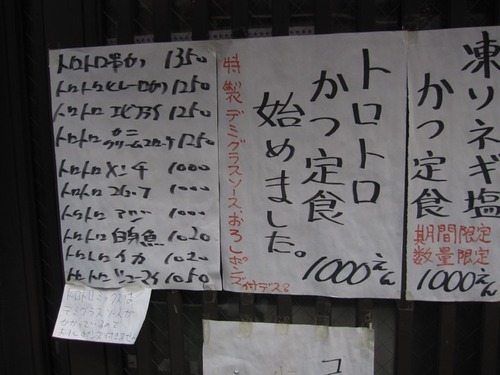 トロトロ串かつ 1350
トロトロヒレーロかつ 1250
トロトロ エビフライ 1250
トロトロ カニクリームコロッケ 1250
トロトロ メンチ 1000
トロトロ コロッケ 1000
トロトロ 1000
トロトロ 白身魚 1020
トロトロ イカ 1020
トロトロ 1050
トロトロミックスは
デミグラスソースが
かかっているので
特製デミグラスソースおろしポンズ付デス
トロトロ
かつ定食
始めました。
1000えん
凍りネギ塩
かつ定食
期間限定
数量限定
1000えん
コ